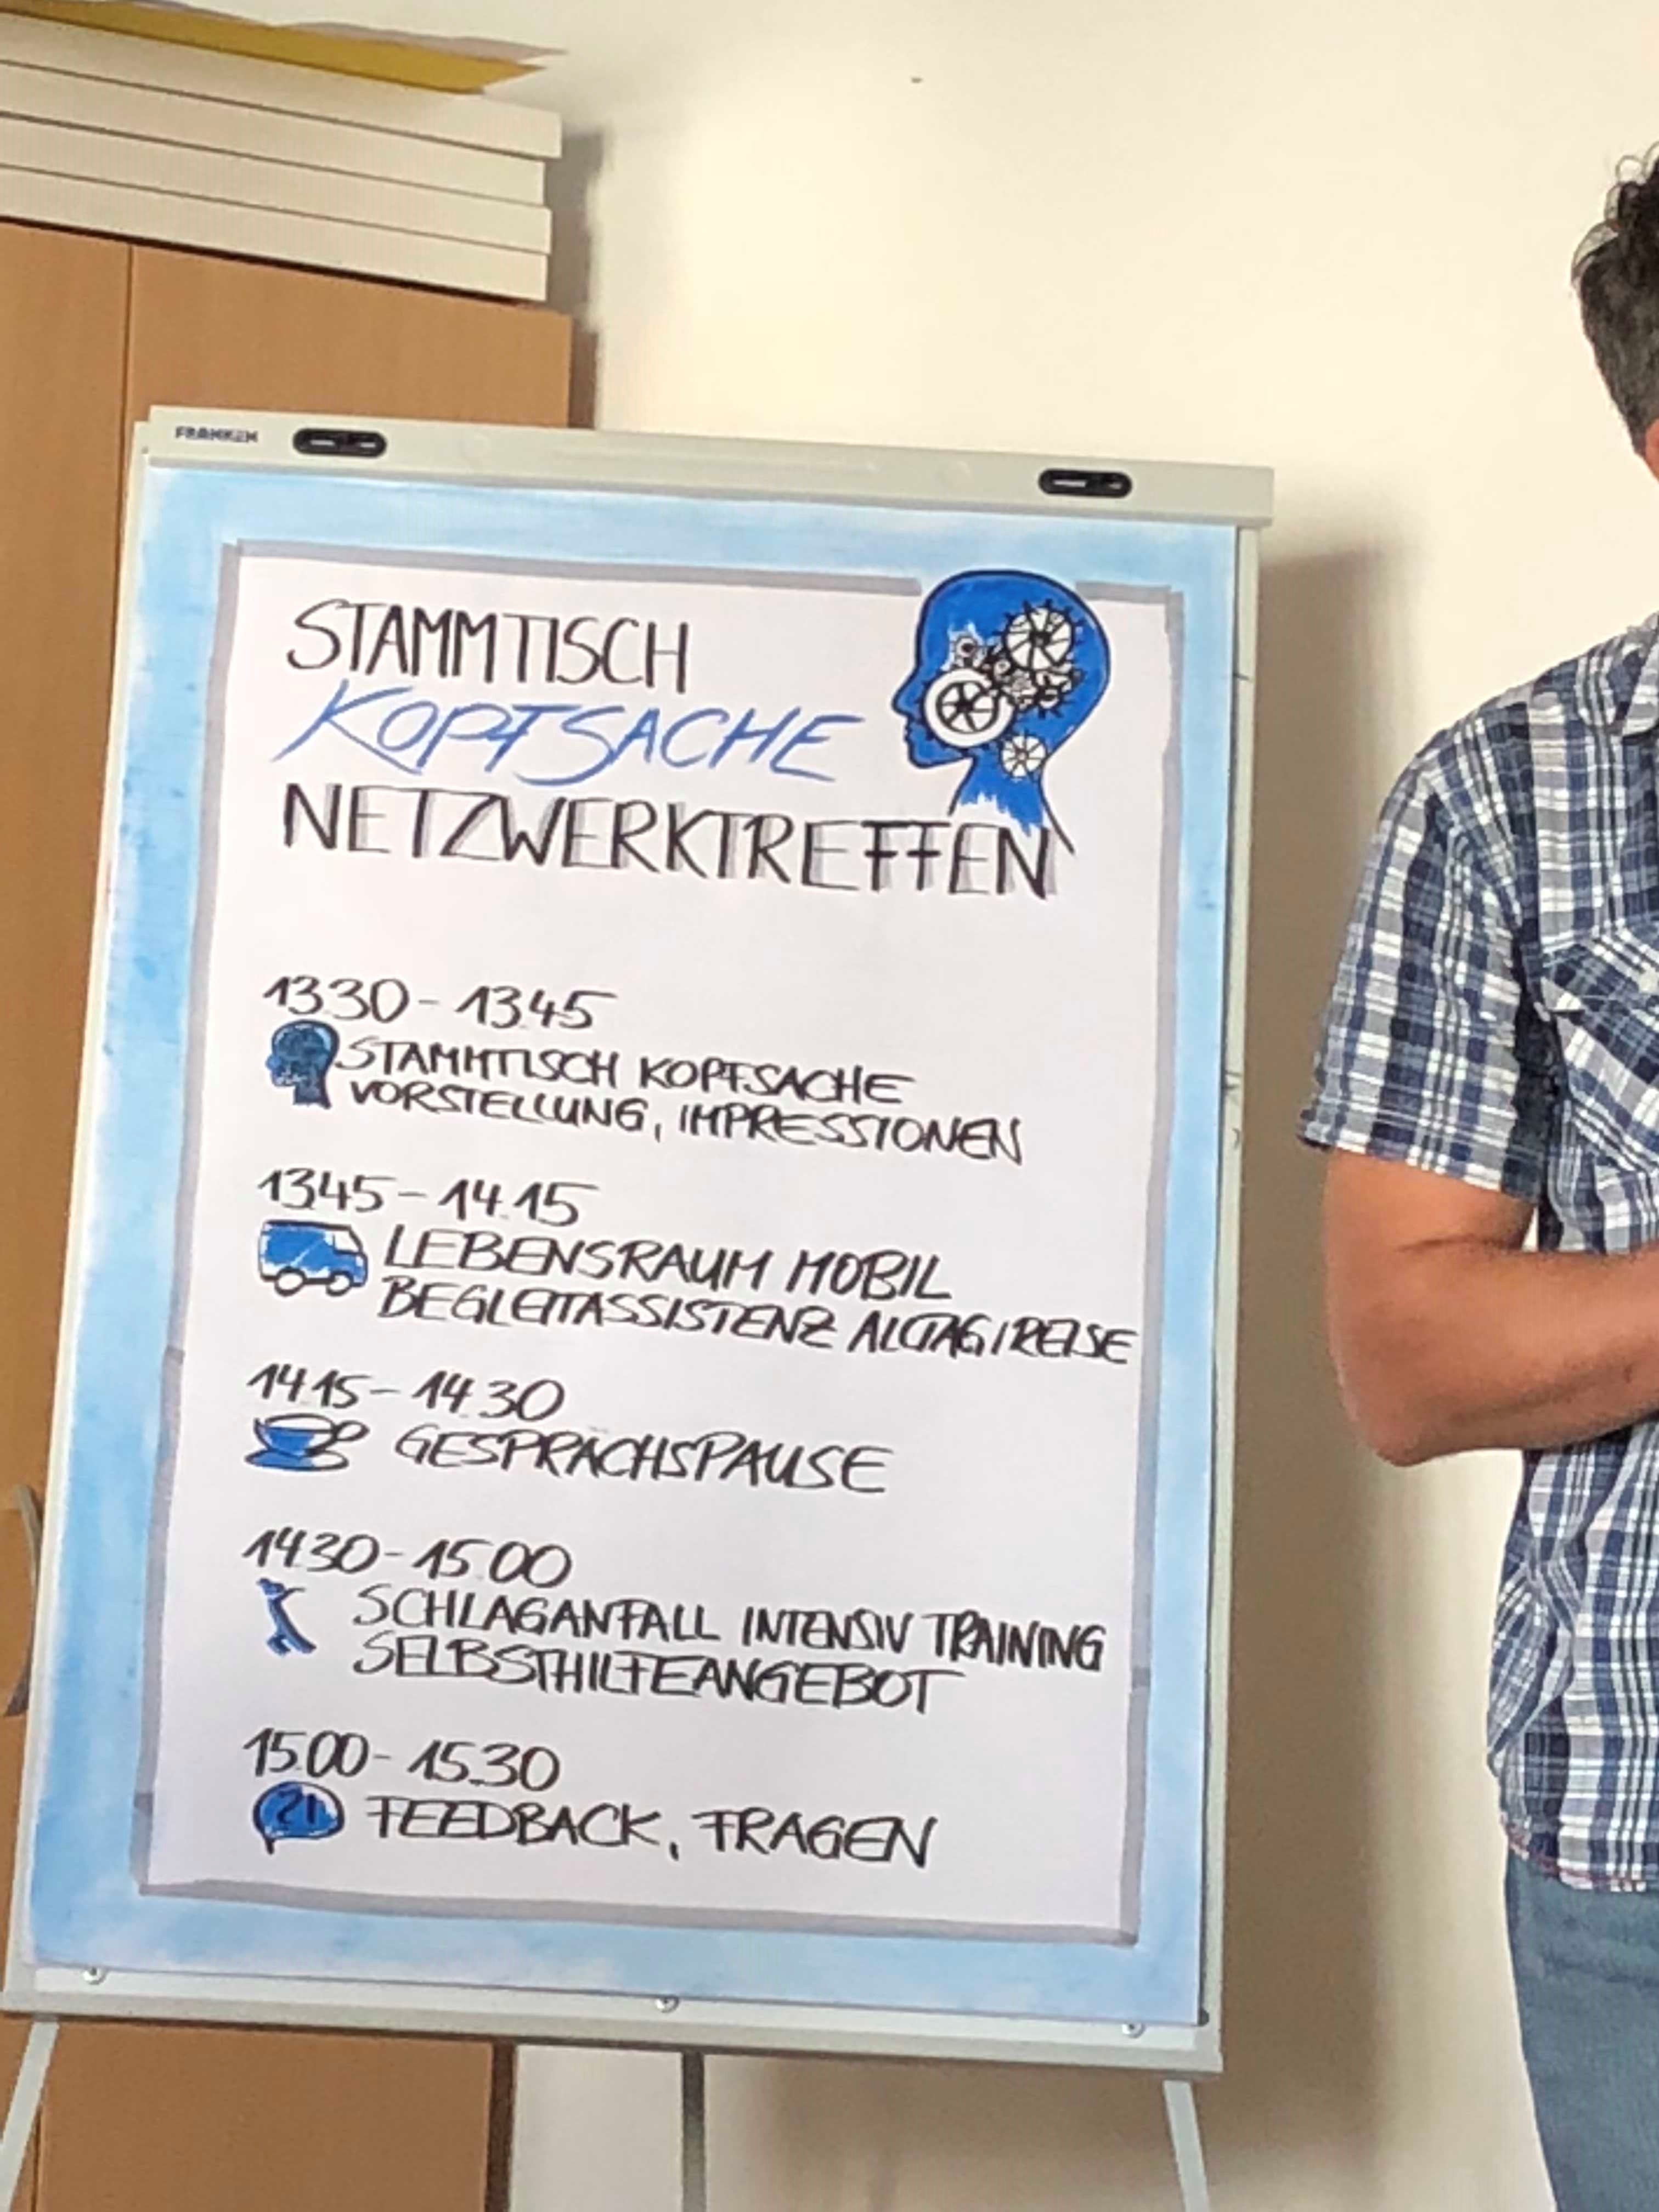 FRANKEN
STAMMTISCH
KOPFSACHE
NETZWERKTREFFEN
13.30 - 13.45
STAMMTISCH KOPFSACHE
VORSTELLUNG, IMPRESSIONEN
13.45 - 14.15
LEBENSRAUM MOBIL
BEGLEITASSISTENZ ALLTAG/REISE
14.15 - 14.30
GESPRÄCHSPAUSE
14.30 - 15.00
SCHLAGANFALL INTENSIV TRAINING
SELBSTHILFEANGEBOT
15.00 - 15.30
FEEDBACK, FRAGEN